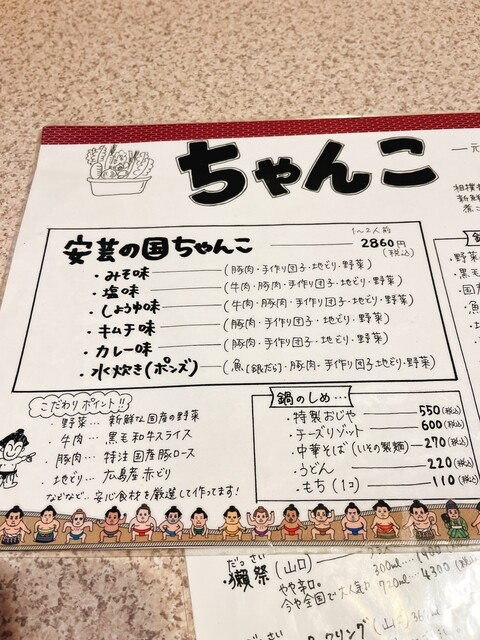 ちゃんこ
一元
相撲
新鮮
煮こ
1〜2人前
安芸の国ちゃんこ 2860円(税込)
・みそ味 (豚肉・手作り団子・地どり・野菜)
・塩味 (牛肉・豚肉・手作り団子・地どり・野菜)
・しょうゆ味 (牛肉・豚肉・手作り団子・地どり・野菜)
・キムチ味 (豚肉・手作り団子・地どり・野菜)
・カレー味 (豚肉・手作り団子・地どり・野菜)
・水炊き(ポンズ) (魚[銀だら]・豚肉・手作り団子・地どり・野菜)
・野菜
・黒毛
・国産
・魚
こだわりポイント!!
野菜… 新鮮な国産の野菜
・牛肉… 黒毛和牛スライス
・豚肉… 特注国産豚ロース
・地どり… 広島産赤どり
などなど…安心食材を厳選して作ってます!
鍋のしめ…
・特製おじや 550(税込)
・チーズリゾット 600(税込)
・中華そば(いその製麺) 270(税込)
・うどん 220(税込)
・もち(1コ) 110(税込)
だっさい
・獺祭(山口)
300ml…1400(税
やや辛口。
今や全国で大人気 720ml…4300(税込